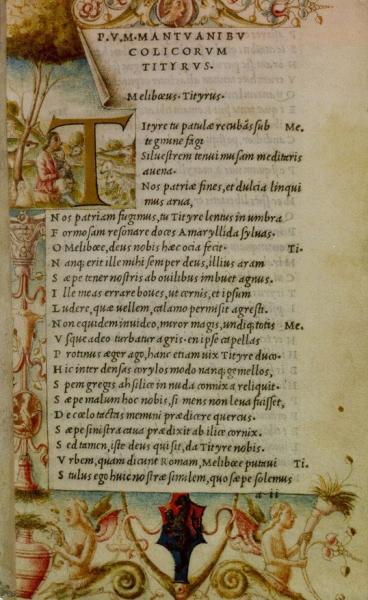 P. V. M. MANTVANI BV
COLICORVM
TITYRVS.
Melibœus. Tityrus.
Tityre tu patulæ recubãs sub Me.
tegmine fagi
Siluestrem tenui musam meditaris
auena.
Nos patriæ fines, et dulcia linqui
mus arua,
Nos patriam fugimus, tu Tityre lentus in umbra
Formosam resonare doces Amaryllida syluas.
O Melibœe, deus nobis hæc ocia fecit. Ti.
Nanq; erit ille mihi semper deus, illius aram
Sæpe tener nostris ab ouilibus imbuet agnus.
Ille meas errare boues, ut cernis, et ipsum
Ludere, quæ uellem, calamo permisit agresti.
Non equidem inuideo, miror magis, undiq; totis Me.
Vsque adeo turbatur agris. en ipse capellas
Protinus æger ago, hanc etiam uix Tityre duco.
Hic inter densas corylos modo nanq; gemellos,
Spem gregis ah silice in nuda connixa reliquit.
Sæpe malum hoc nobis, si mens non leua fuisset,
De cœlo tactas memini prædicere quercus.
Sæpe sinistra caua prædixit ab ilice cornix.
Sed tamen, iste deus qui sit, da Tityre nobis.
Vrbem, quam dicunt Romam, Melibœe putaui Ti.
Stulus ego huic nostræ similem, quo sæpe solemus
a ii